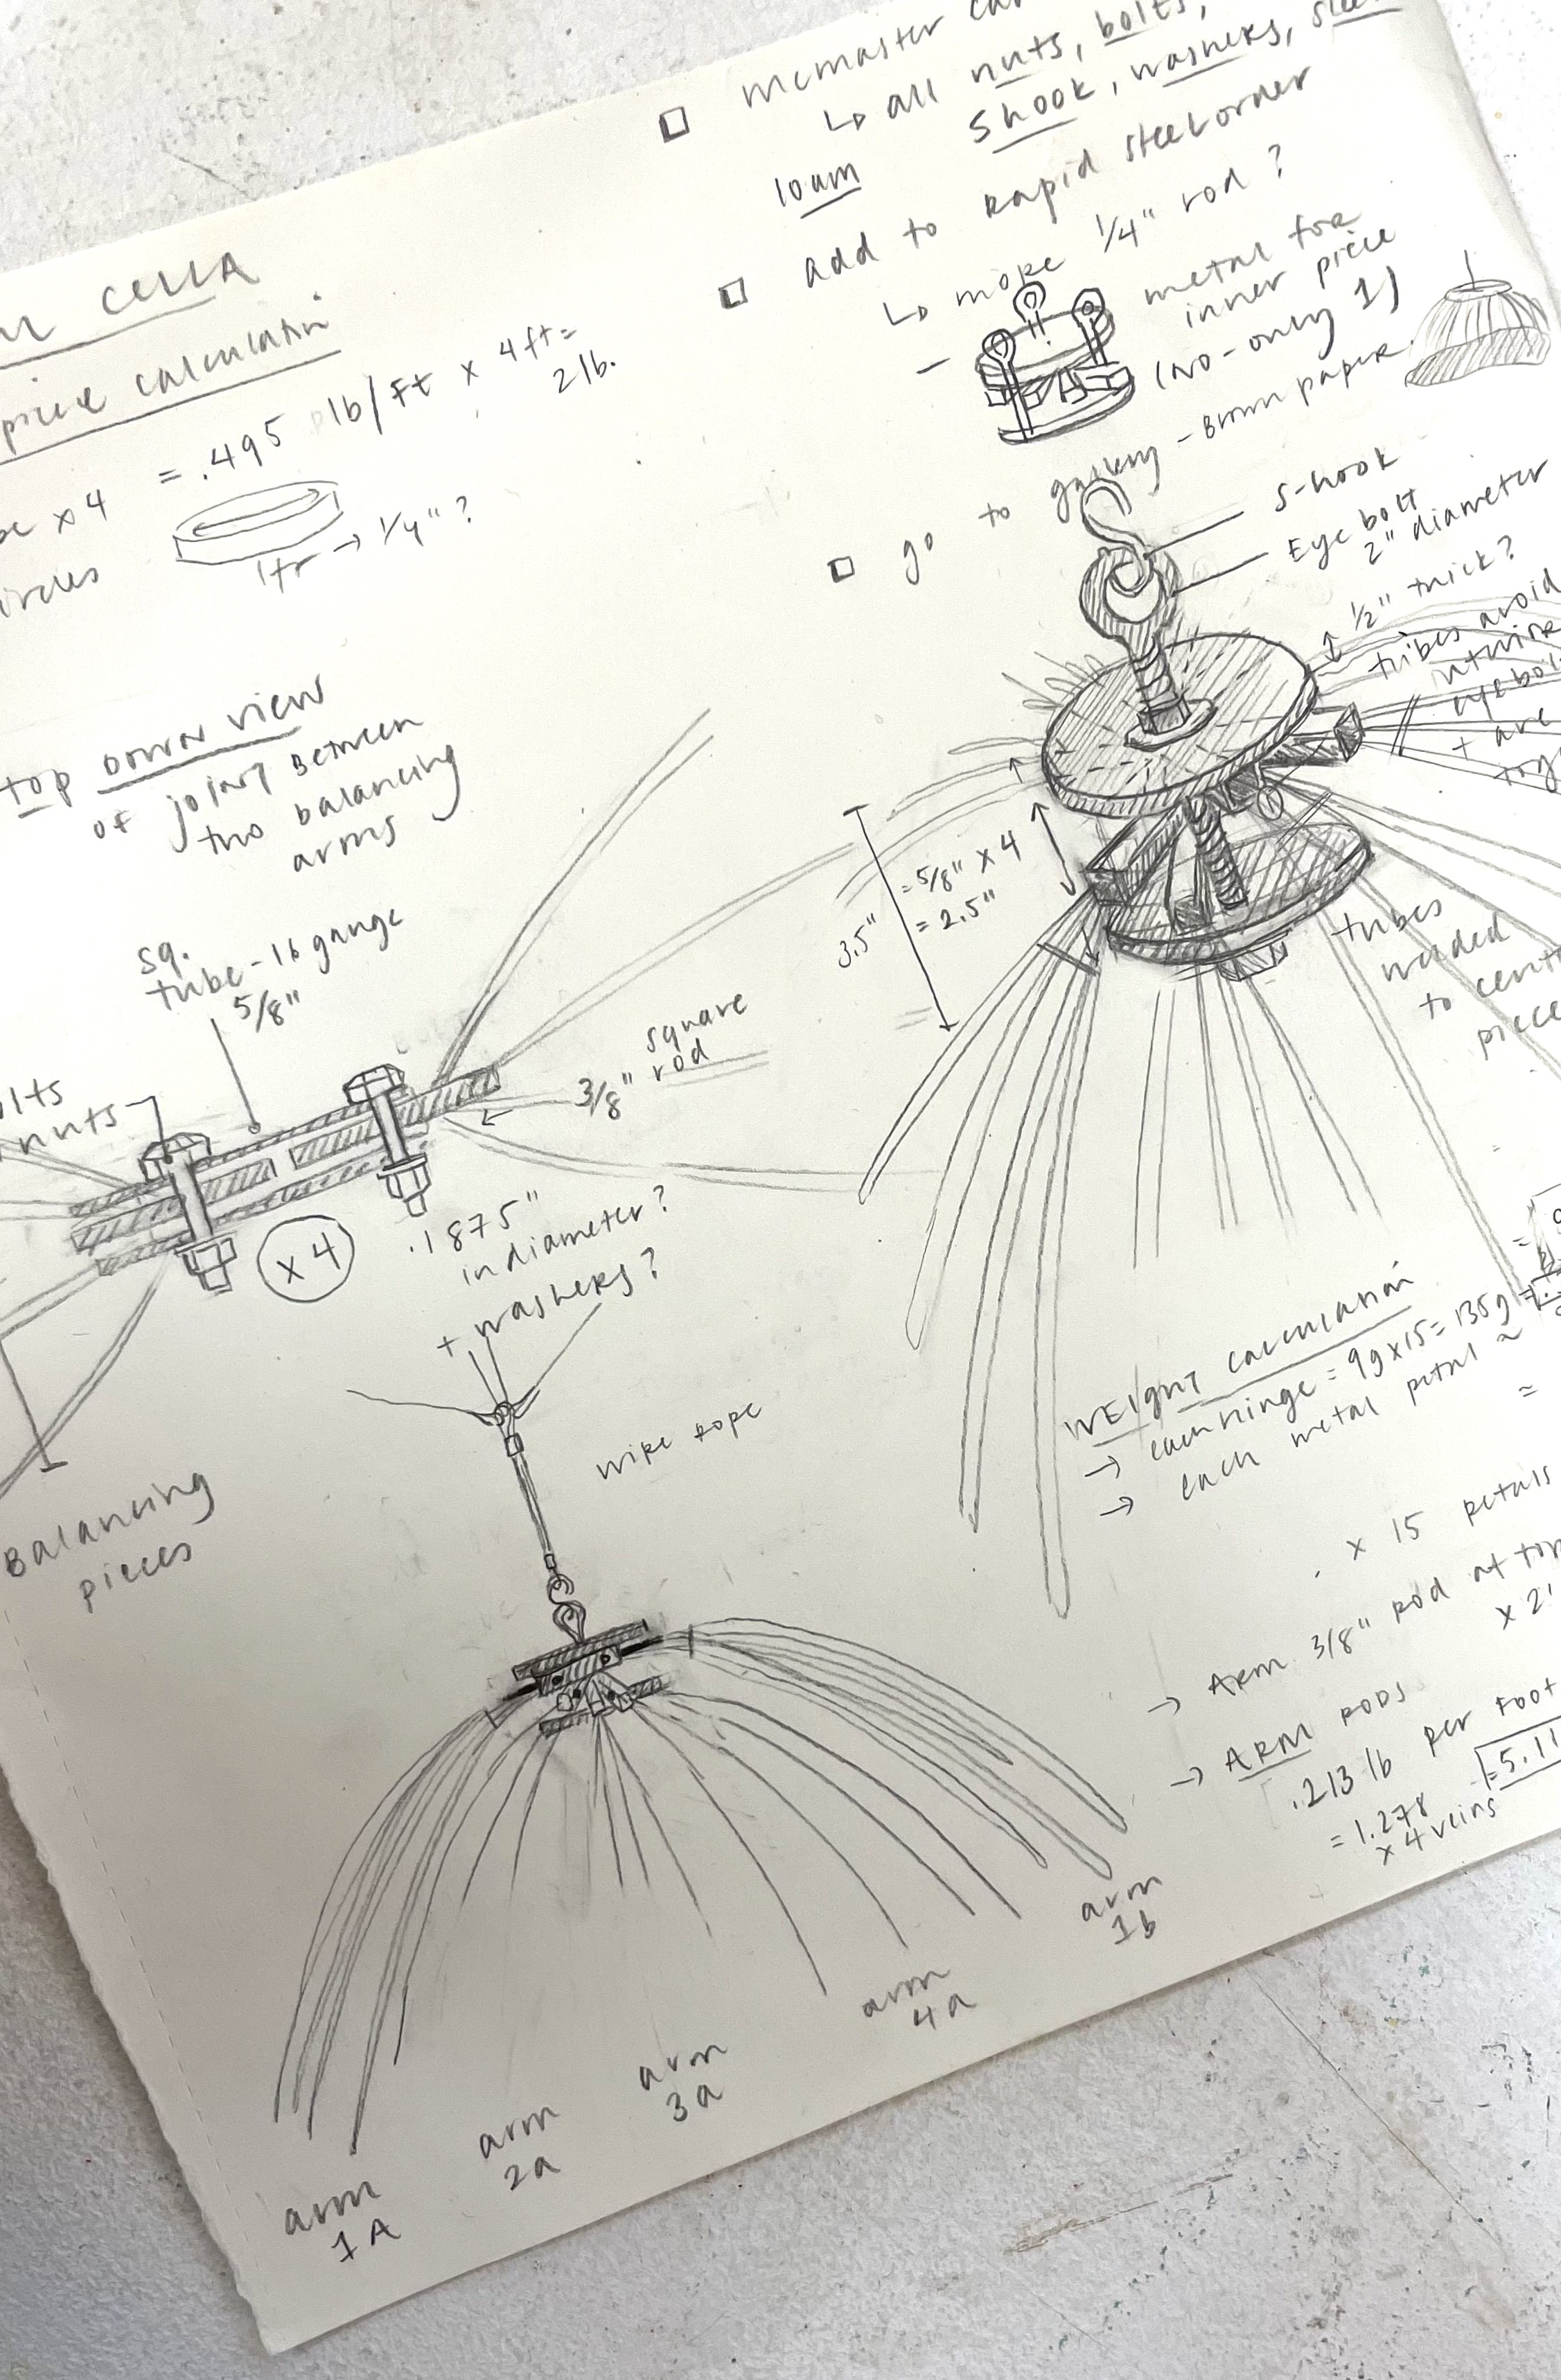 CELLA
piece calculation
= .495 lb/ft x 4 ft =
2 lb.
x 4
1ft → 1/4" ?
top down view
of joint between
two balancing
arms
sq.
tube - 16 gauge
5/8"
nuts
3/8" square
rod
x 4
.1875"
in diameter?
+ washers?
Balancing
pieces
wire rope
arm
1A
arm
2a
arm
3a
arm
4a
arm
1b
□ mcmaster
↳ all nuts, bolts,
S hook, washers,
10am
□ add to rapid steel order
↳ more 1/4" rod ?
- metal for
inner piece
(no - only 1)
□ go to - Brown paper
S-hook
Eye bolt
2" diameter
1/2" thick?
tubes avoid
+ are
3.5"
= 5/8" x 4
= 2.5"
tubes
welded
to
piece
Weight calculation
→ each hinge = 9g x 15 = 135g =
→ each metal petal ≈
≈
x 15 petals
→ Arm 3/8" rod at top
x 2'
→ ARM RODS
.213 lb per foot
= 1.278
x 4 veins
= 5.11